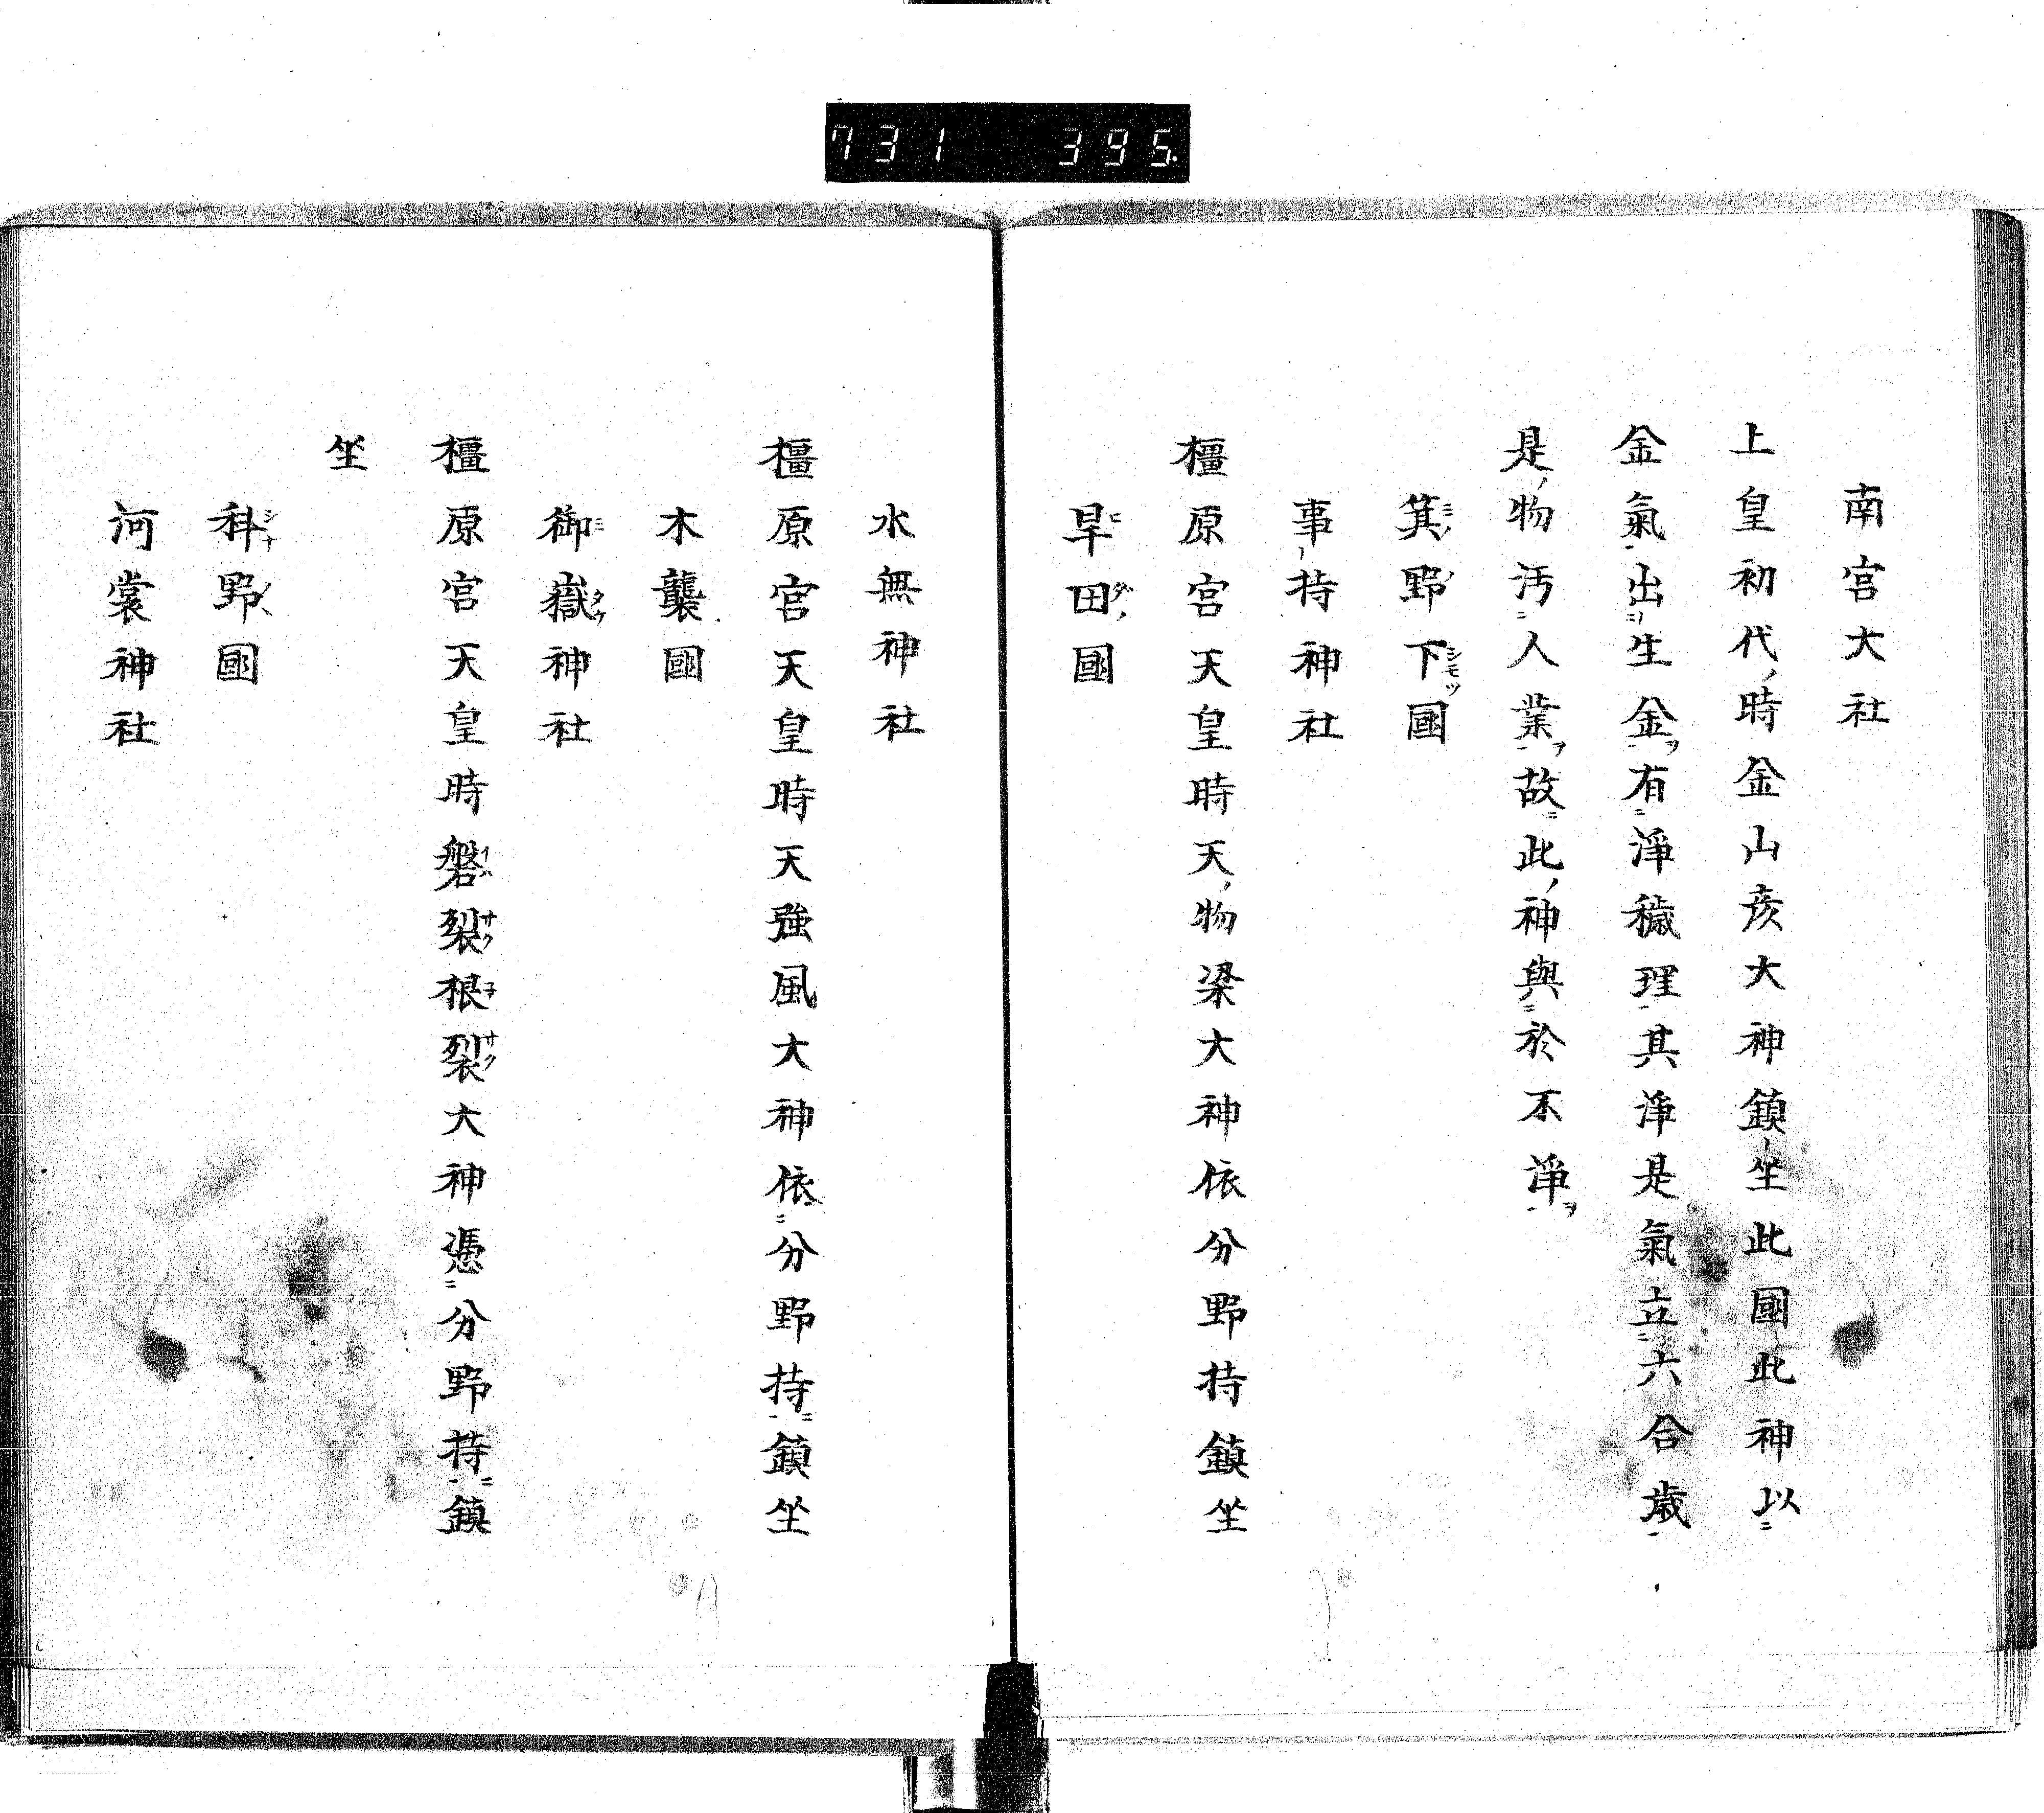 731 395.
南宮大社
上皇初代ノ時金山彦大神鎮坐此國此神以
金氣出生金ヲ有淨穢理其淨是氣立六合歳
是ノ物汚人業ヲ故此ノ神與於不淨ヲ
箕野下國
事持神社
橿原宮天皇時天ノ物梁大神依分野持鎮坐
旱田國
水無神社
橿原宮天皇時天強風大神依分野持鎮坐
木襲國
御嶽神社
橿原宮天皇時磐裂根裂大神憑分野持鎮
坐
科野國
河裳神社